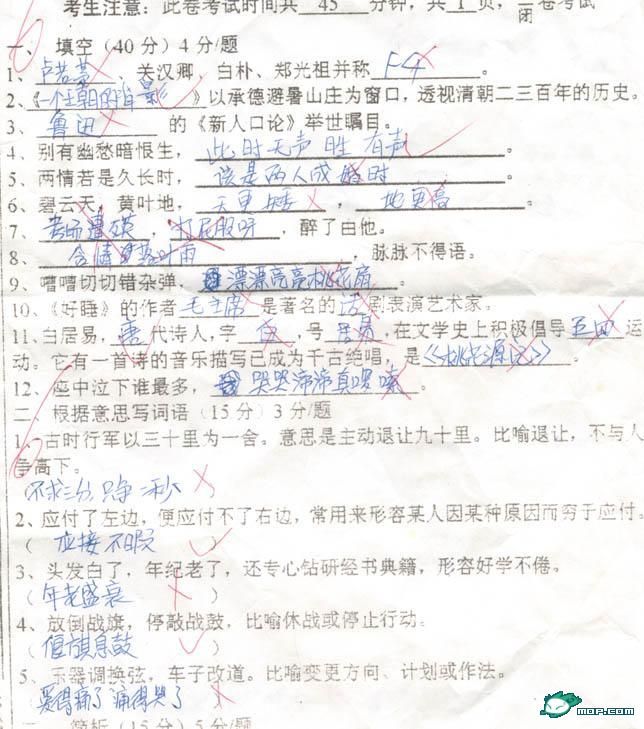 考生注意：此卷考试时间共 45 分钟，共 1 页，闭卷考试
一、填空（40分）4分/题
1、卢若蒿、关汉卿，白朴、郑光祖并称 F4 。
2、《一个王朝的背影》以承德避暑山庄为窗口，透视清朝二三百年的历史。
3、鲁迅 的《新人口论》举世瞩目。
4、别有幽愁暗恨生，此时无声胜有声 。
5、两情若是久长时，该是两人成婚时 。
6、碧云天，黄叶地，天更矮 ， 地更高 。
7、考场遭殃 ，打屁股呀 ，醉了由他。
8、含情 ，脉脉不得语。
9、嘈嘈切切错杂弹，漂漂亮亮桃花扇 。
10、《好睡》的作者 毛主席 是著名的 话 剧表演艺术家。
11、白居易，唐 代诗人，字 白 ，号 居易 ，在文学史上积极倡导 五四 运
动。它有一首诗的音乐描写已成为千古绝唱，是《桃花源记》。
12、座中泣下谁最多，哭哭啼啼真啰嗦 。
二 根据意思写词语（15分）3分/题
1、古时行军以三十里为一舍。意思是主动退让九十里。比喻退让，不与人
争高下。
（不求三分 只争二秒 ）
2、应付了左边，便应付不了右边，常用来形容某人因某种原因而穷于应付。
（ 应接不暇 ）
3、头发白了，年纪老了，还专心钻研经书典籍，形容好学不倦。
（年老盛衰 ）
4、放倒战旗，停敲战鼓，比喻休战或停止行动。
（偃旗息鼓 ）
5、乐器调换弦，车子改道。比喻变更方向、计划或作法。
爱得痛了 痛得哭了 ）
简析（15分）5分/题
MOP.COM